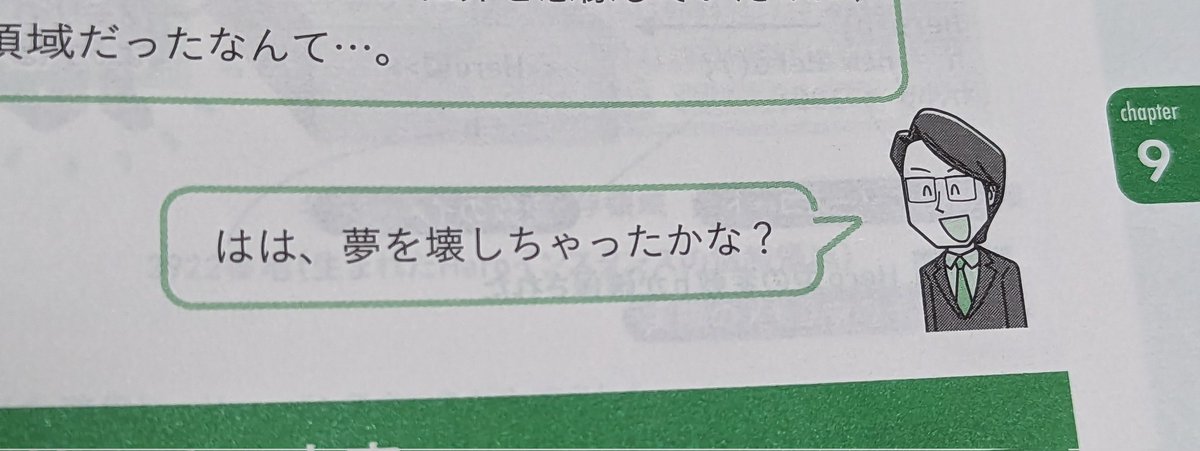 領域だったなんて…。
chapter
9
はは、夢を壊しちゃったかな？